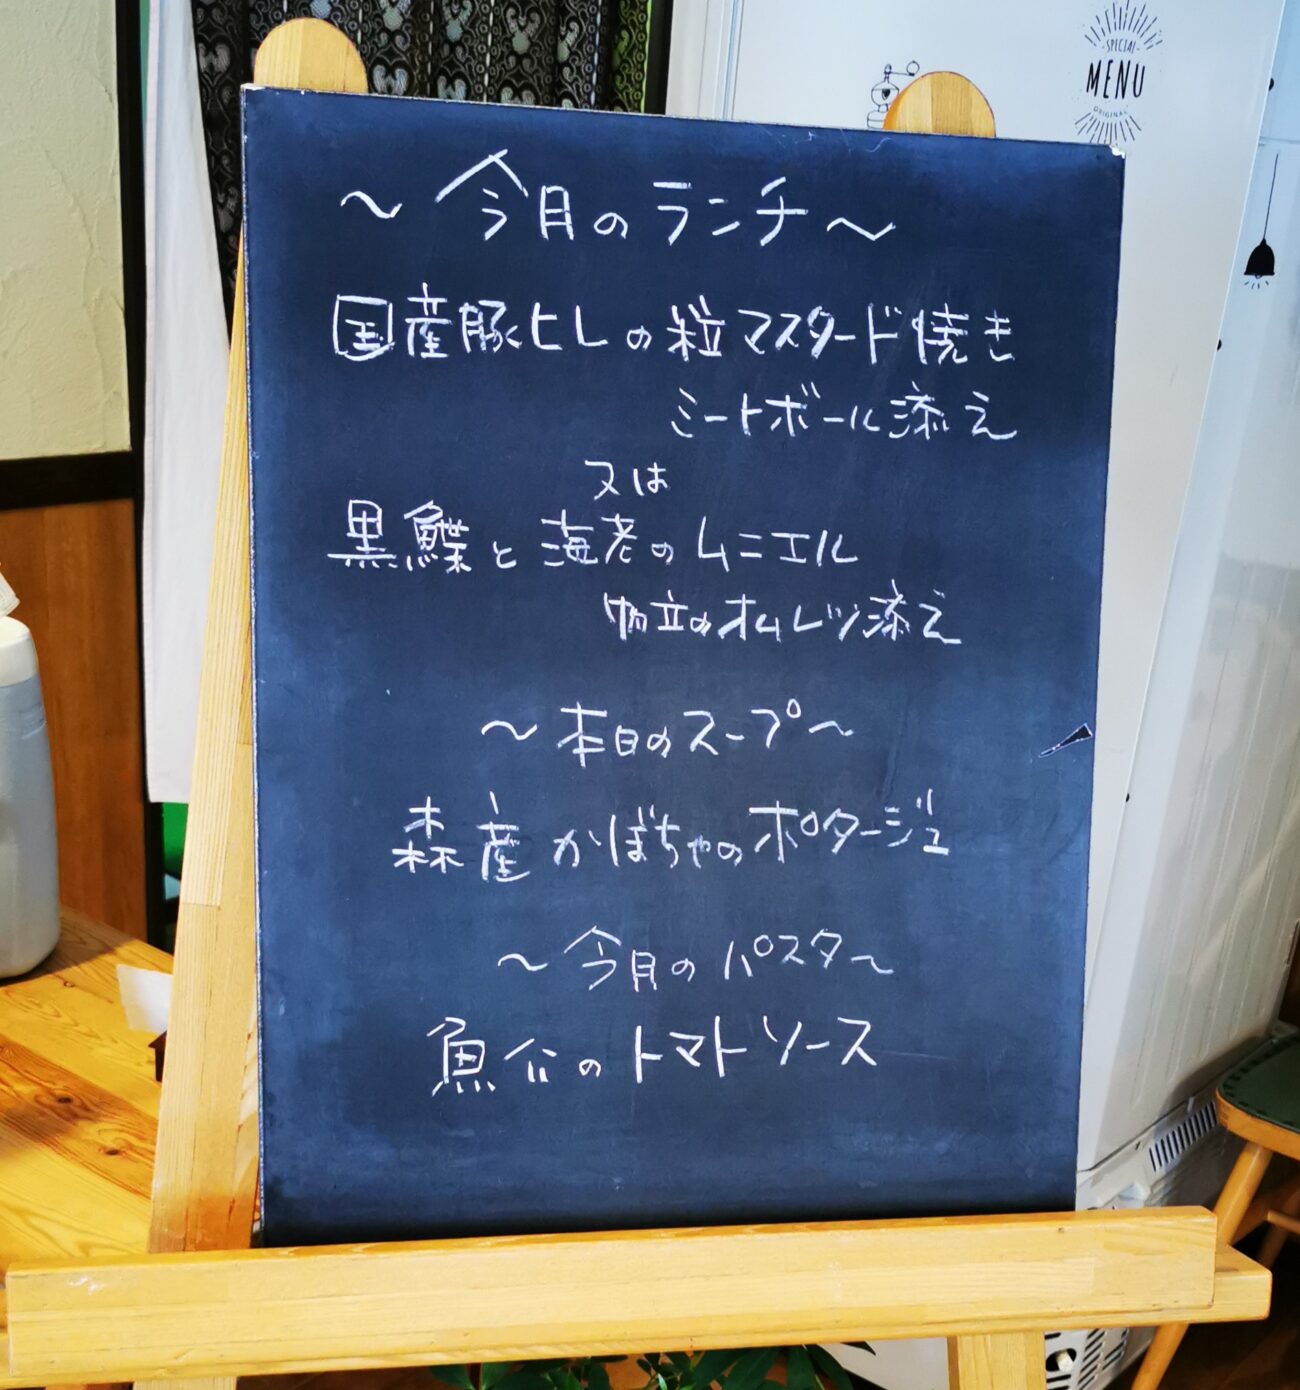 SPECIAL
MENU
ORIGINAL
～今月のランチ～
国産豚ヒレの粒マスタード焼き
ミートボール添え
又は
黒鰈と海老のムニエル
帆立のオムレツ添え
～本日のスープ～
森産かぼちゃのポタージュ
～今月のパスタ～
魚介のトマトソース